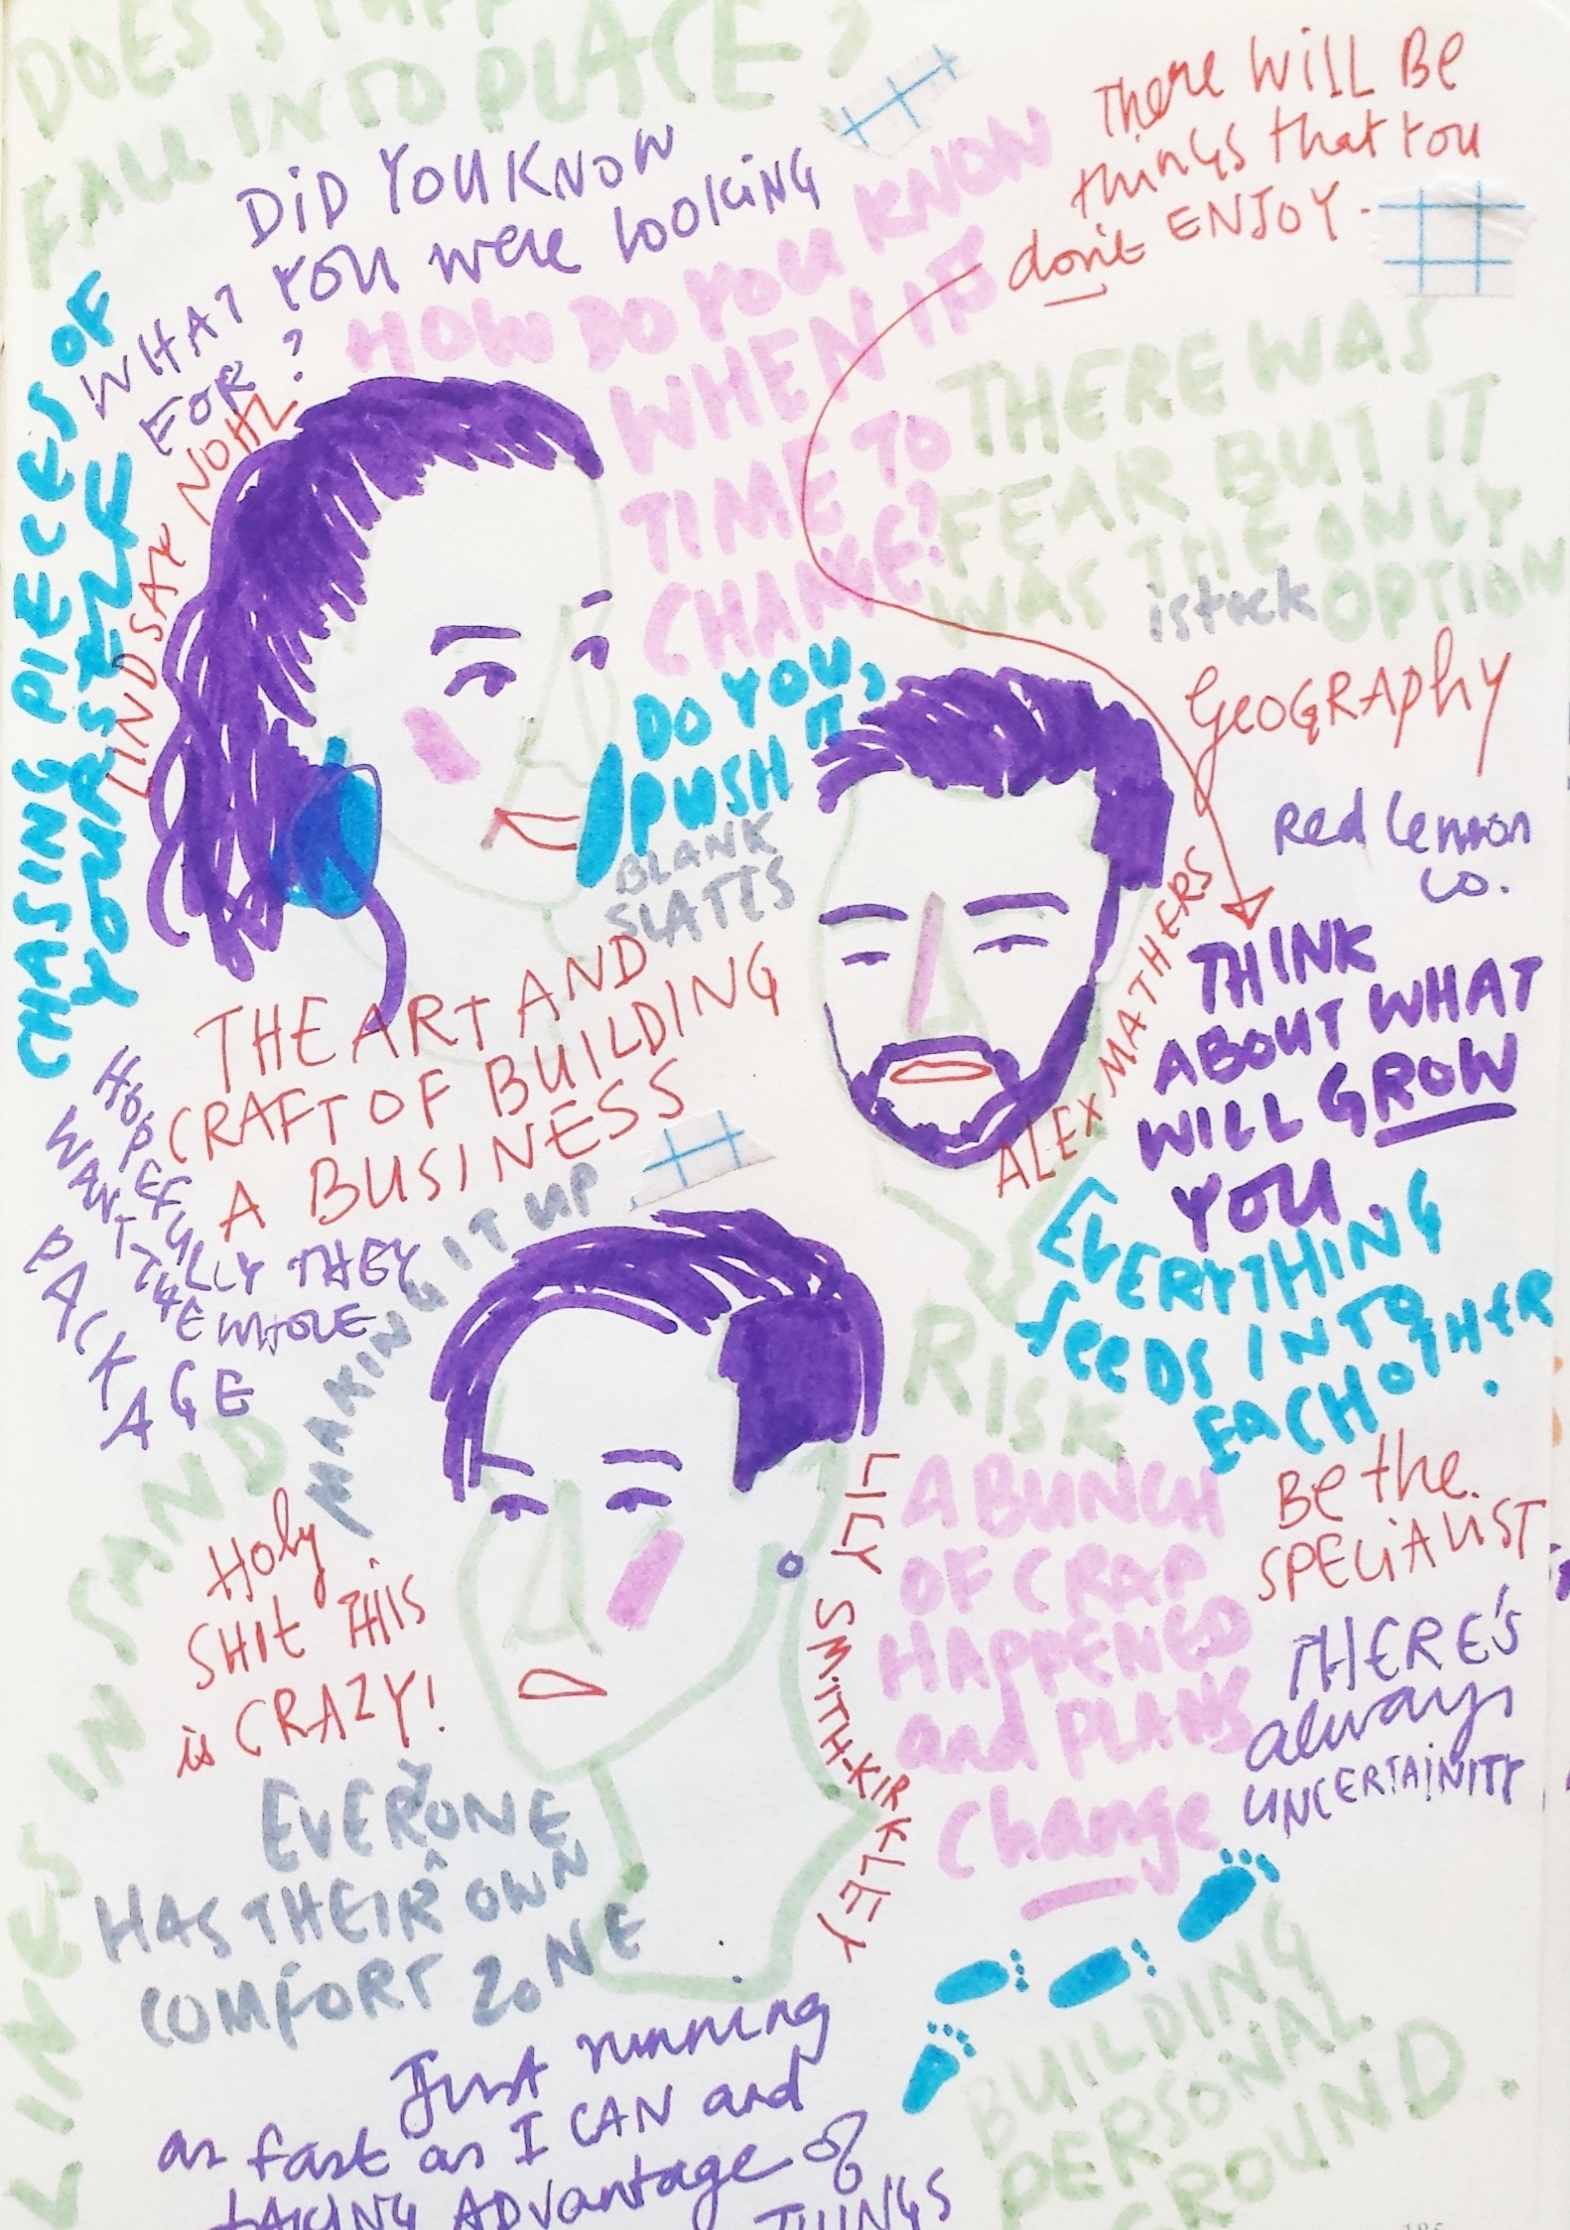 DOES STUFF
FALL INTO PLACE?
DiD YOU KNOW
WHAT YOU were looking
FOR?
HOW DO YOU KNOW
WHEN IT'S
TIME TO
CHANGE?
There WILL Be
things that You
don't ENJOY.
THERE WAS
FEAR BUT IT
WAS THE ONLY
OPTION
istock
CHASING PIECES OF
YOURSELF
LINDSAY NOHL
DO YOU,
PUSH IT
BLANK
SLATES
GeOGRAphy
Red Lemon
co.
ALEX MATHERS
THINK
ABOUT WHAT
WILL GROW
YOU.
THE ART AND
CRAFT OF BUILDING
A BUSINESS
HOPEFULLY THEY
WANT THE WHOLE
PACKAGE
MAKING IT UP
EVERYTHING
feeDS INTO
EACHOTHER.
RISK
LILY SMITH-KIRKLEY
A BUNCH
OF CRAP
HAPPENED
and PLANS
Change
Be the
SPECiALIST
THERE'S
always
UNCERTAINITY
LINES IN SAND
Holy
SHIt THiS
is CRAZY!
EVERYONE
HAS THEIR OWN
COMFORT ZONE
Just running
as fast as I CAN and
tAKING ADvantage of
THINGS
BUILDING
PERSONAL
GROUND.